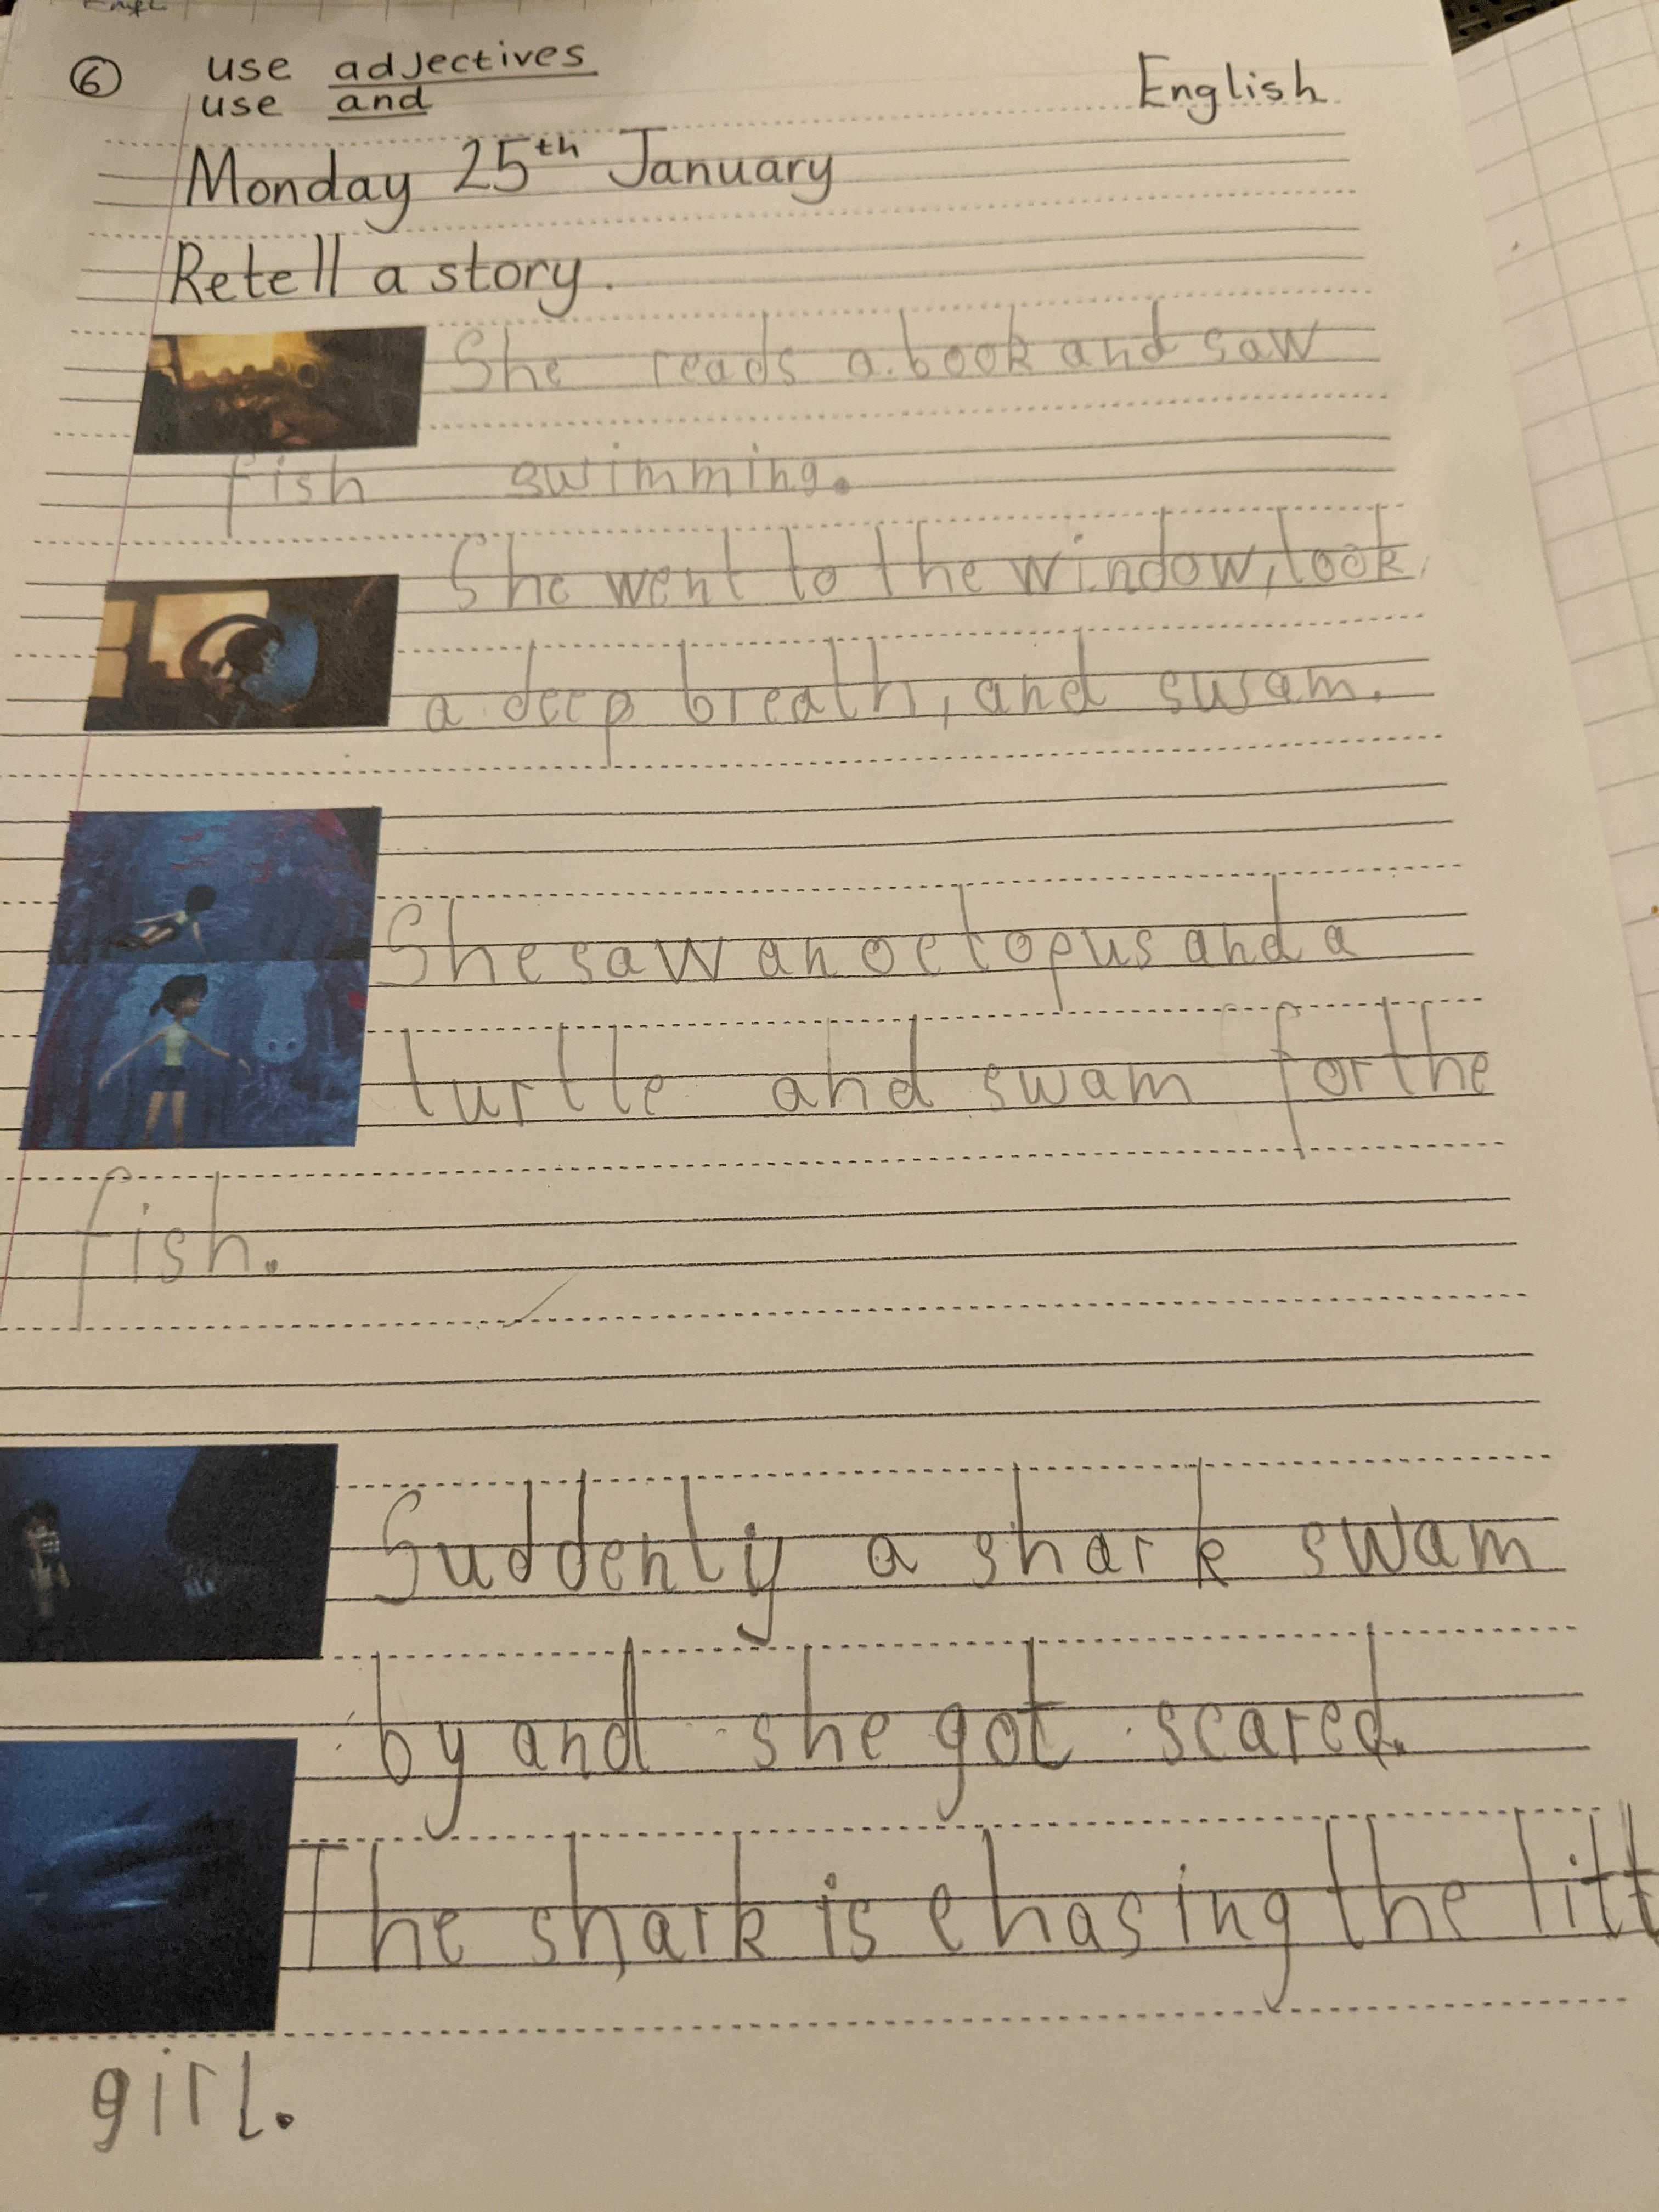 6 use adjectives
use and
English
Monday 25th January
Retell a story.
She reads a book and saw
fish swimming.
She went to the window, look
a deep breath, and swam.
She saw an octopus and a
turtle and swam for the
fish.
Suddenly a shark swam
by and she got scared.
The shark is chasing the litt
girl.